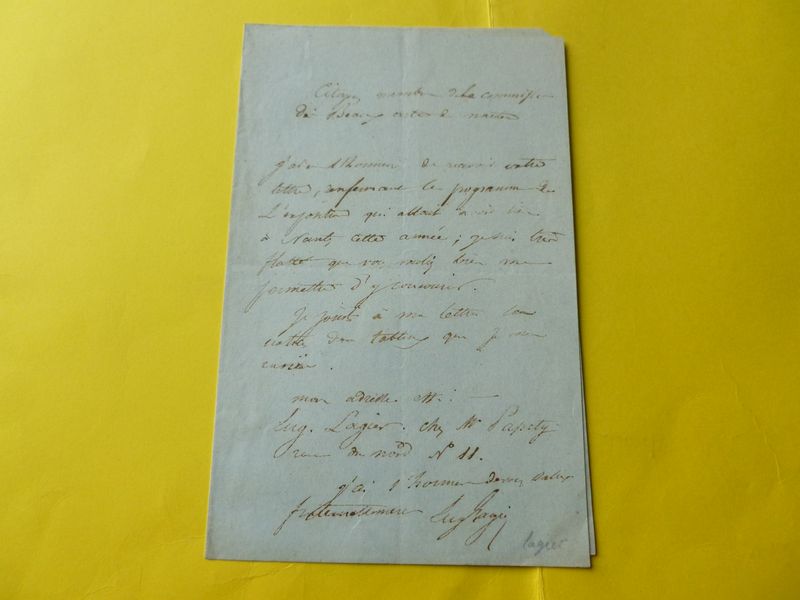 Citoyen membre de la commission
des Beaux arts de nantes
j'ai l'honneur de recevoir votre
lettre, renfermant le programme de
L'exposition qui allait avoir lieu
à Nantes cette année; je suis très
flatté que vous bien me
permettre d'y concourir.
Je joints à ma lettre
notice des tableaux que je vous
envoie.
mon adresse est: —
Eug. Lagier. chez Mr Papety
rue du nord N° 11.
j'ai l'honneur de vous saluer
fraternellement Eug Lagier
lagier